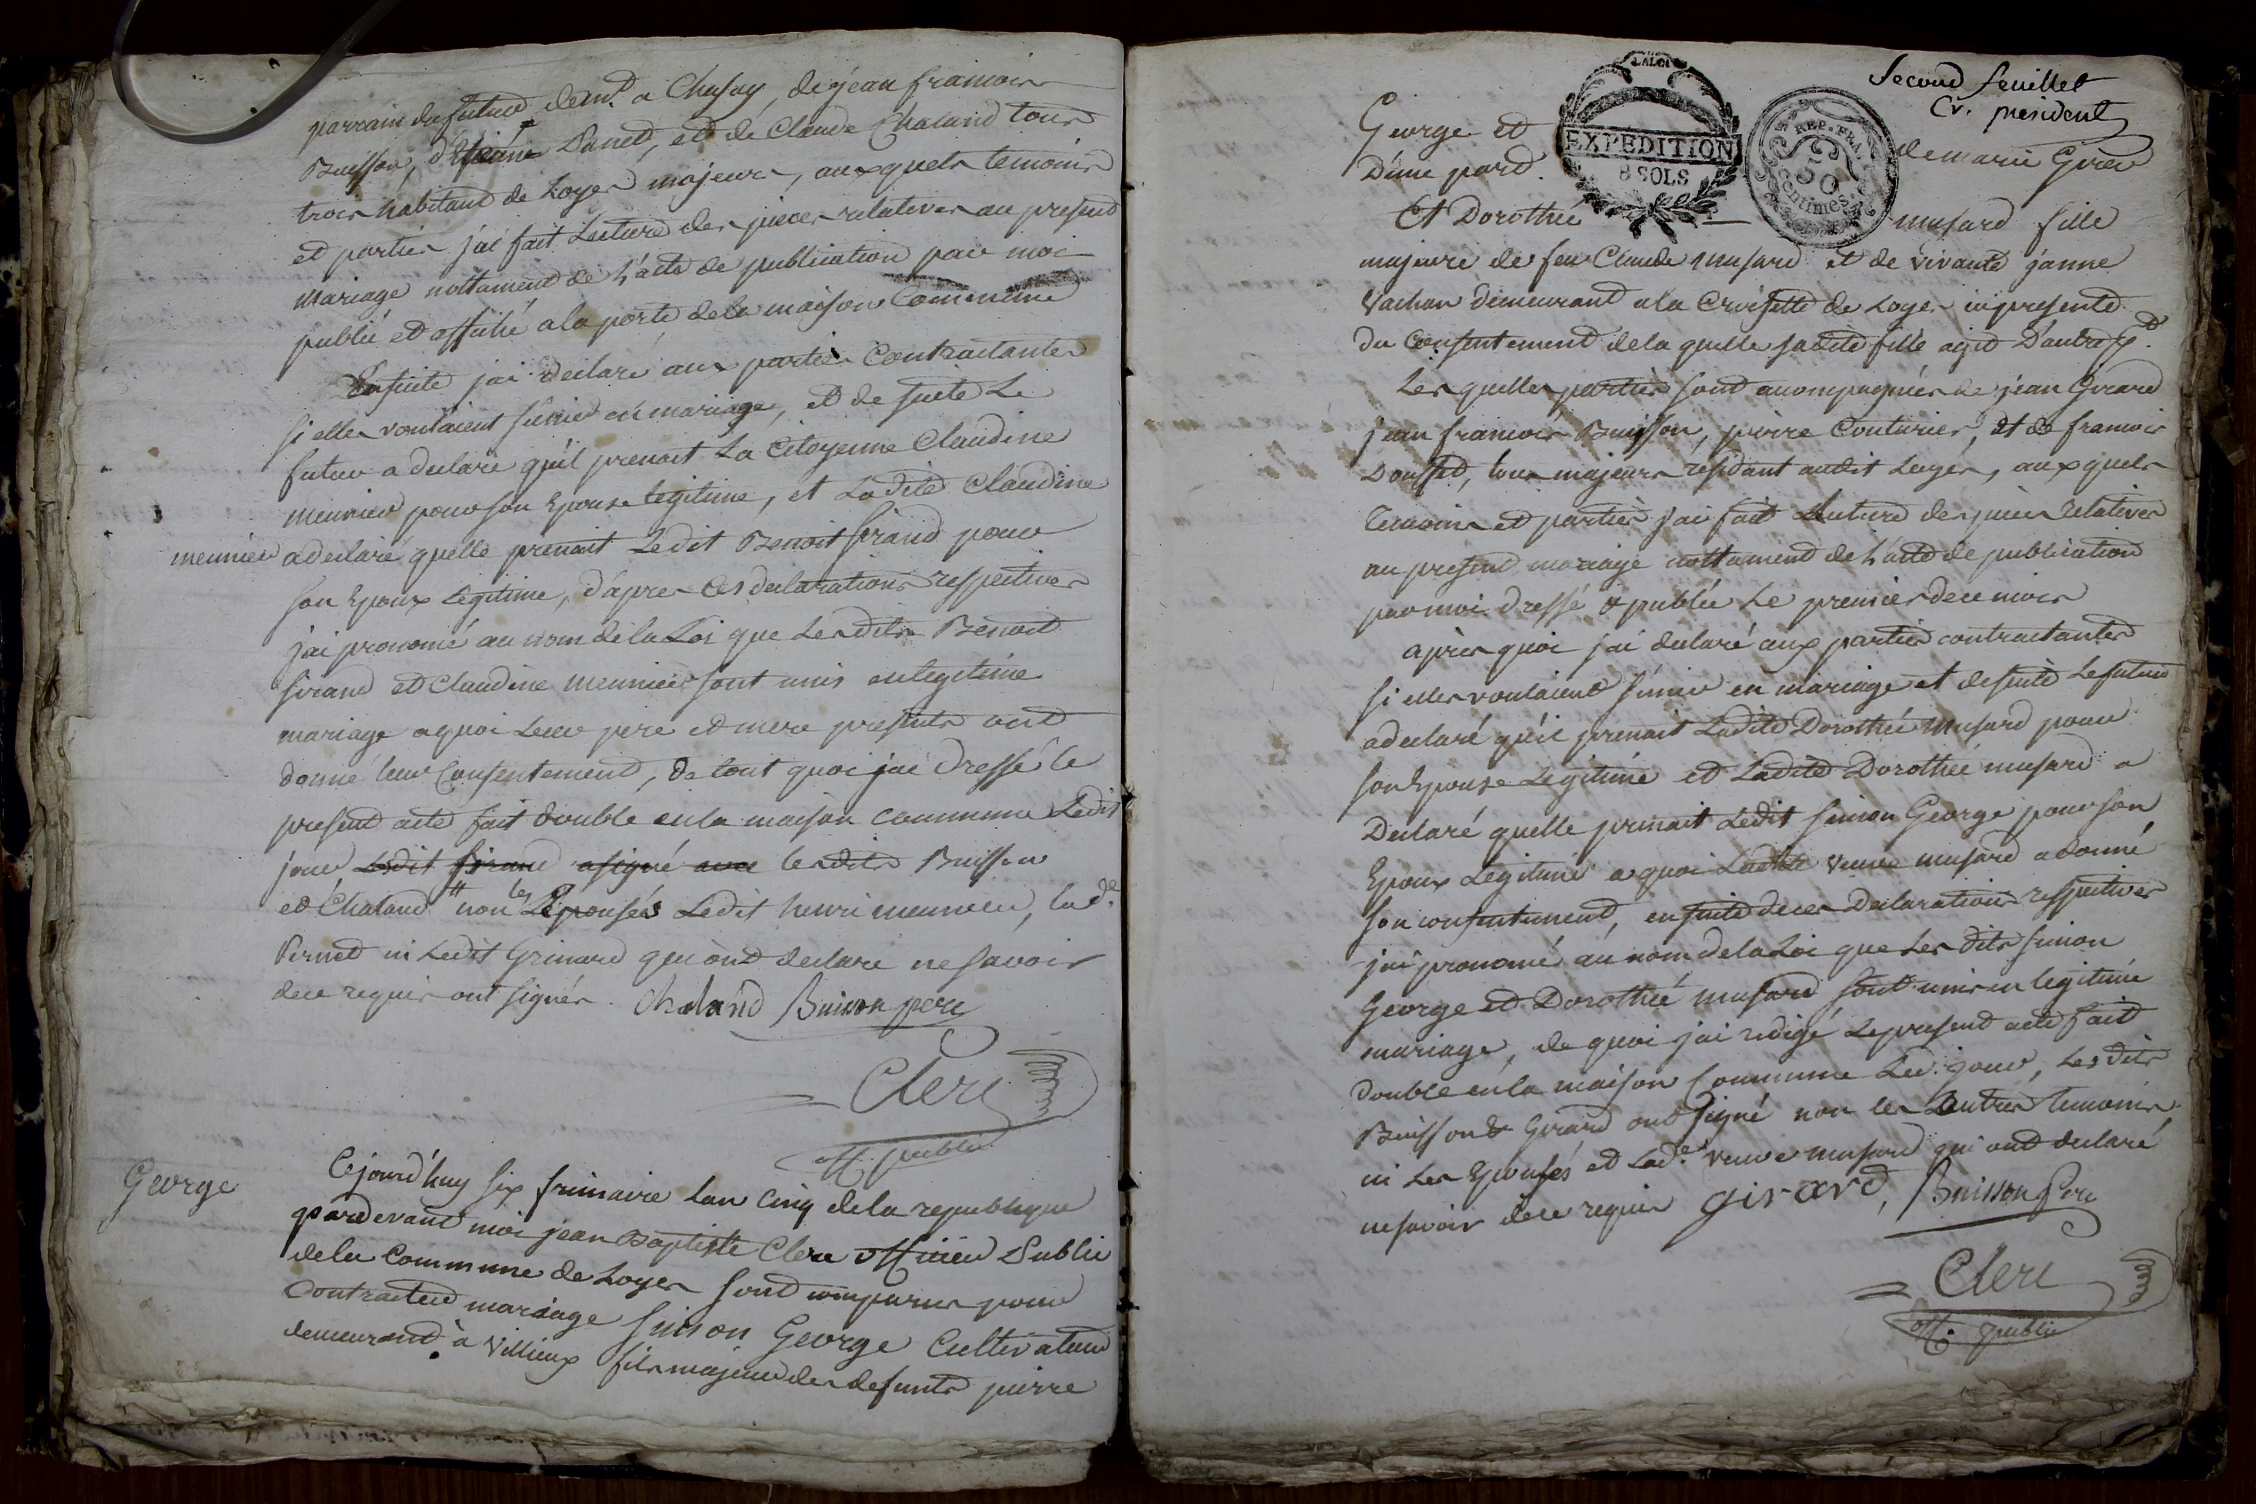 parrain du futur dem.t a Chasay, de jéan francois
Buisson, d'Etienne Panet, et de Claude Chaland tous
trois habitant de Loyes majeurs, auxquels temoins
et parties j'ai fait Lecture des pieces relatives au present
mariage nottament de L'acte de publication par moi
publié et affiché a la porte de la maison Commune
Ensuite jai declaré aux parties Contractantes
si elles voulaient s'unir en mariage, et de suite Le
futur a declaré qu'il prenoit La Citoyenne Claudine
meunier pour son Epouse legitime, et Ladite Claudine
meunier a declaré quelle prenait Ledit Benoit sirand pour
son Epoux Legitime, d'apres ces declarations respectives
j'ai prononcé au nom de la Loi que Lesdits Benoit
sirand et Claudine meunier sont unis en legitime
mariage a quoi Leur pere et mere presents ont
donné leur Consentement, de tout quoi jai dressé le
present acte fait double en la maison commune Ledit
jour Ledit sirand a signé avec lesdits Buisson
et Chaland non les Epousés Ledit henri meunier, lad.e
Pernet ni Ledit Grinard qui ont declaré ne savoir
de ce requis ont signés. Chaland Buisson pere
Clerc
off. public
George
Cejourd'huy six frimaire Lan Cinq de la republique
pardevant moi jean Baptiste Clerc officier Public
de la Commune de Loyes sont comparus pour
Contracter mariage simon George Cultivateur
demeurant à Villieux fils majeur des defunts pierre
Second feuillet
Cr. president
LA LOI
EXPEDITION
8 SOLS
REP. FRA.
50
centimes
George et de marie Giret
D'une part.
Et Dorothée musard fille
majeure de feu Claude musard et de vivante janne
Vachon demeurant a la Croisette de Loyes ici presente
du Consentement de la quelle sadite fille agit D'autre p.t
Les quelles parties sont accompagnées de jean Girard
jean francois Buisson, pierre Couturier, et de francois
Dousset, tous majeurs résidant audit Loyes, aux quels
Temoins et parties j'ai fait Lecture des pieces relatives
au present mariage nottament de L'acte de publication
par moi dressé & publiée Le premier de ce mois
après quoi j'ai declaré aux parties contractantes
si elles voulaient s'unir en mariage et de suite Le futur
a declaré qu'il prenait Ladite Dorothée musard pour
son Epouse Legitime et Ladite Dorothée musard a
Declaré quelle prenait Ledit simon George pour son
Epoux Legitime a quoi Ladite veuve musard a donné
son consentement, en suite de ces Declarations respectives
j'ai prononcé au nom de la Loi que Les dits simon
George et Dorothée musard sont unis en legitime
mariage, de quoi j'ai redigé Le present acte fait
double en la maison Commune Led. jour, Les dits
Buisson & Girard ont signé non les autres temoins
ni Les Epousés et Lad.e veuve musard qui ont declaré
ne savoir de ce requis girard, Buisson Pere
Clerc
off. public